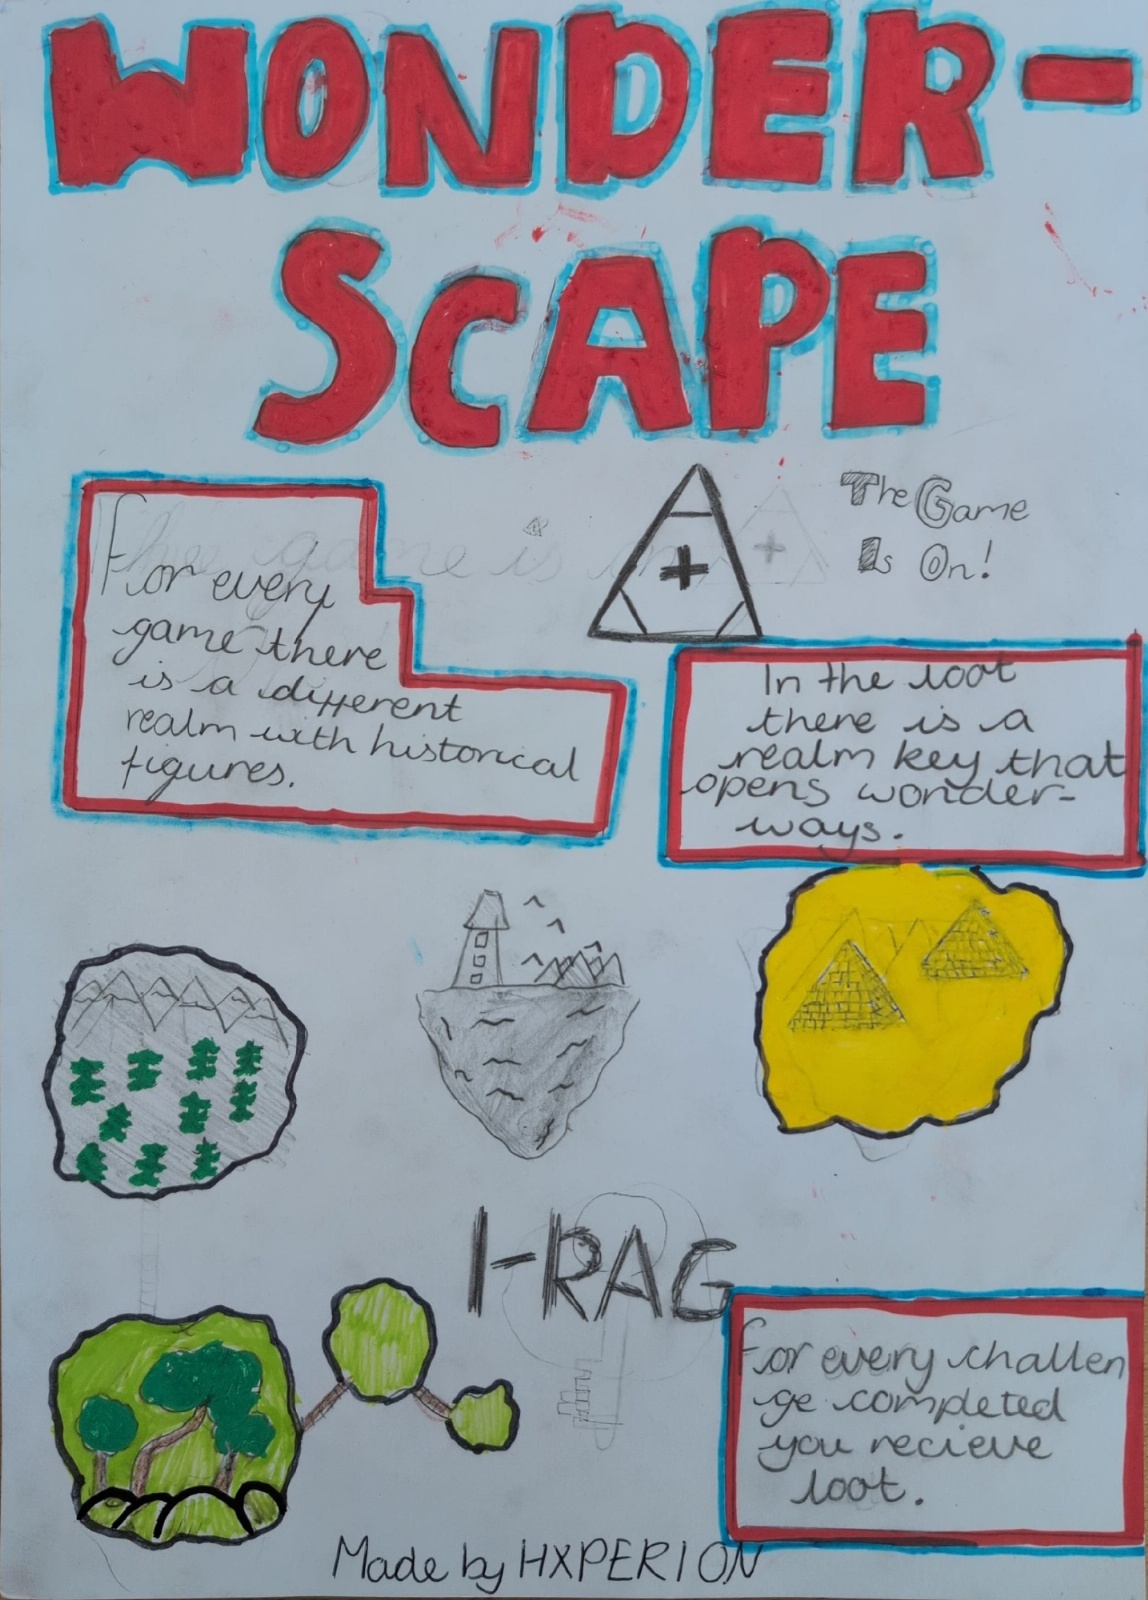 WONDER-
SCAPE
The Game
Is On!
For every
game there
is a different
realm with historical
figures.
In the loot
there is a
realm key that
opens wonder-
ways.
I-RAG
For every challen
ge completed
you recieve
loot.
Made by HXPERION